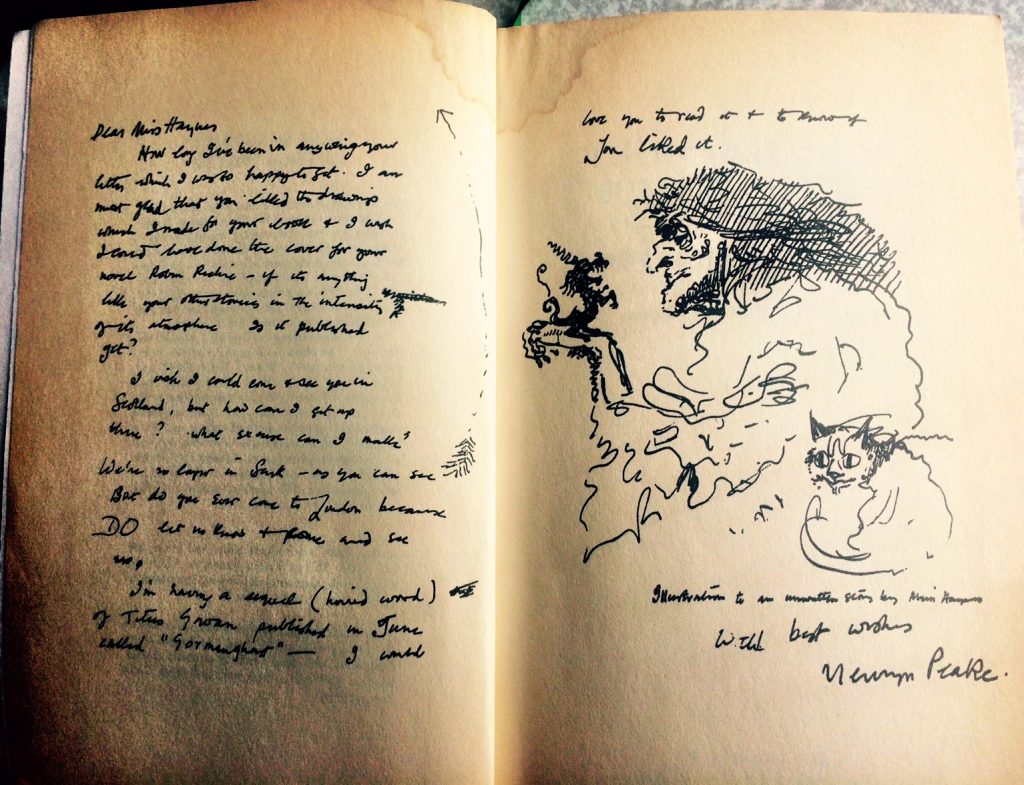 Dear Miss Haynes
How long I've been in answering your
letter which I was so happy to get. I am
most glad that you liked the drawings
which I made for your book & I wish
I could have done the cover for your
novel Robin Ritchie – if its anything
like your other stories in the intensity
of its atmosphere Is it published
yet?
I wish I could come & see you in
Scotland, but how can I get up
there? What excuse can I make?
We're no longer in Sark – as you can see
But do you ever come to London because
DO let us know & come and see
us.
I'm having a sequel (horrid word)
of Titus Groan published in June
called "Gormenghast" — I would
love you to read it & to know if
you liked it.
Illustration to an unwritten story by Miss Haynes
With best wishes
Mervyn Peake.